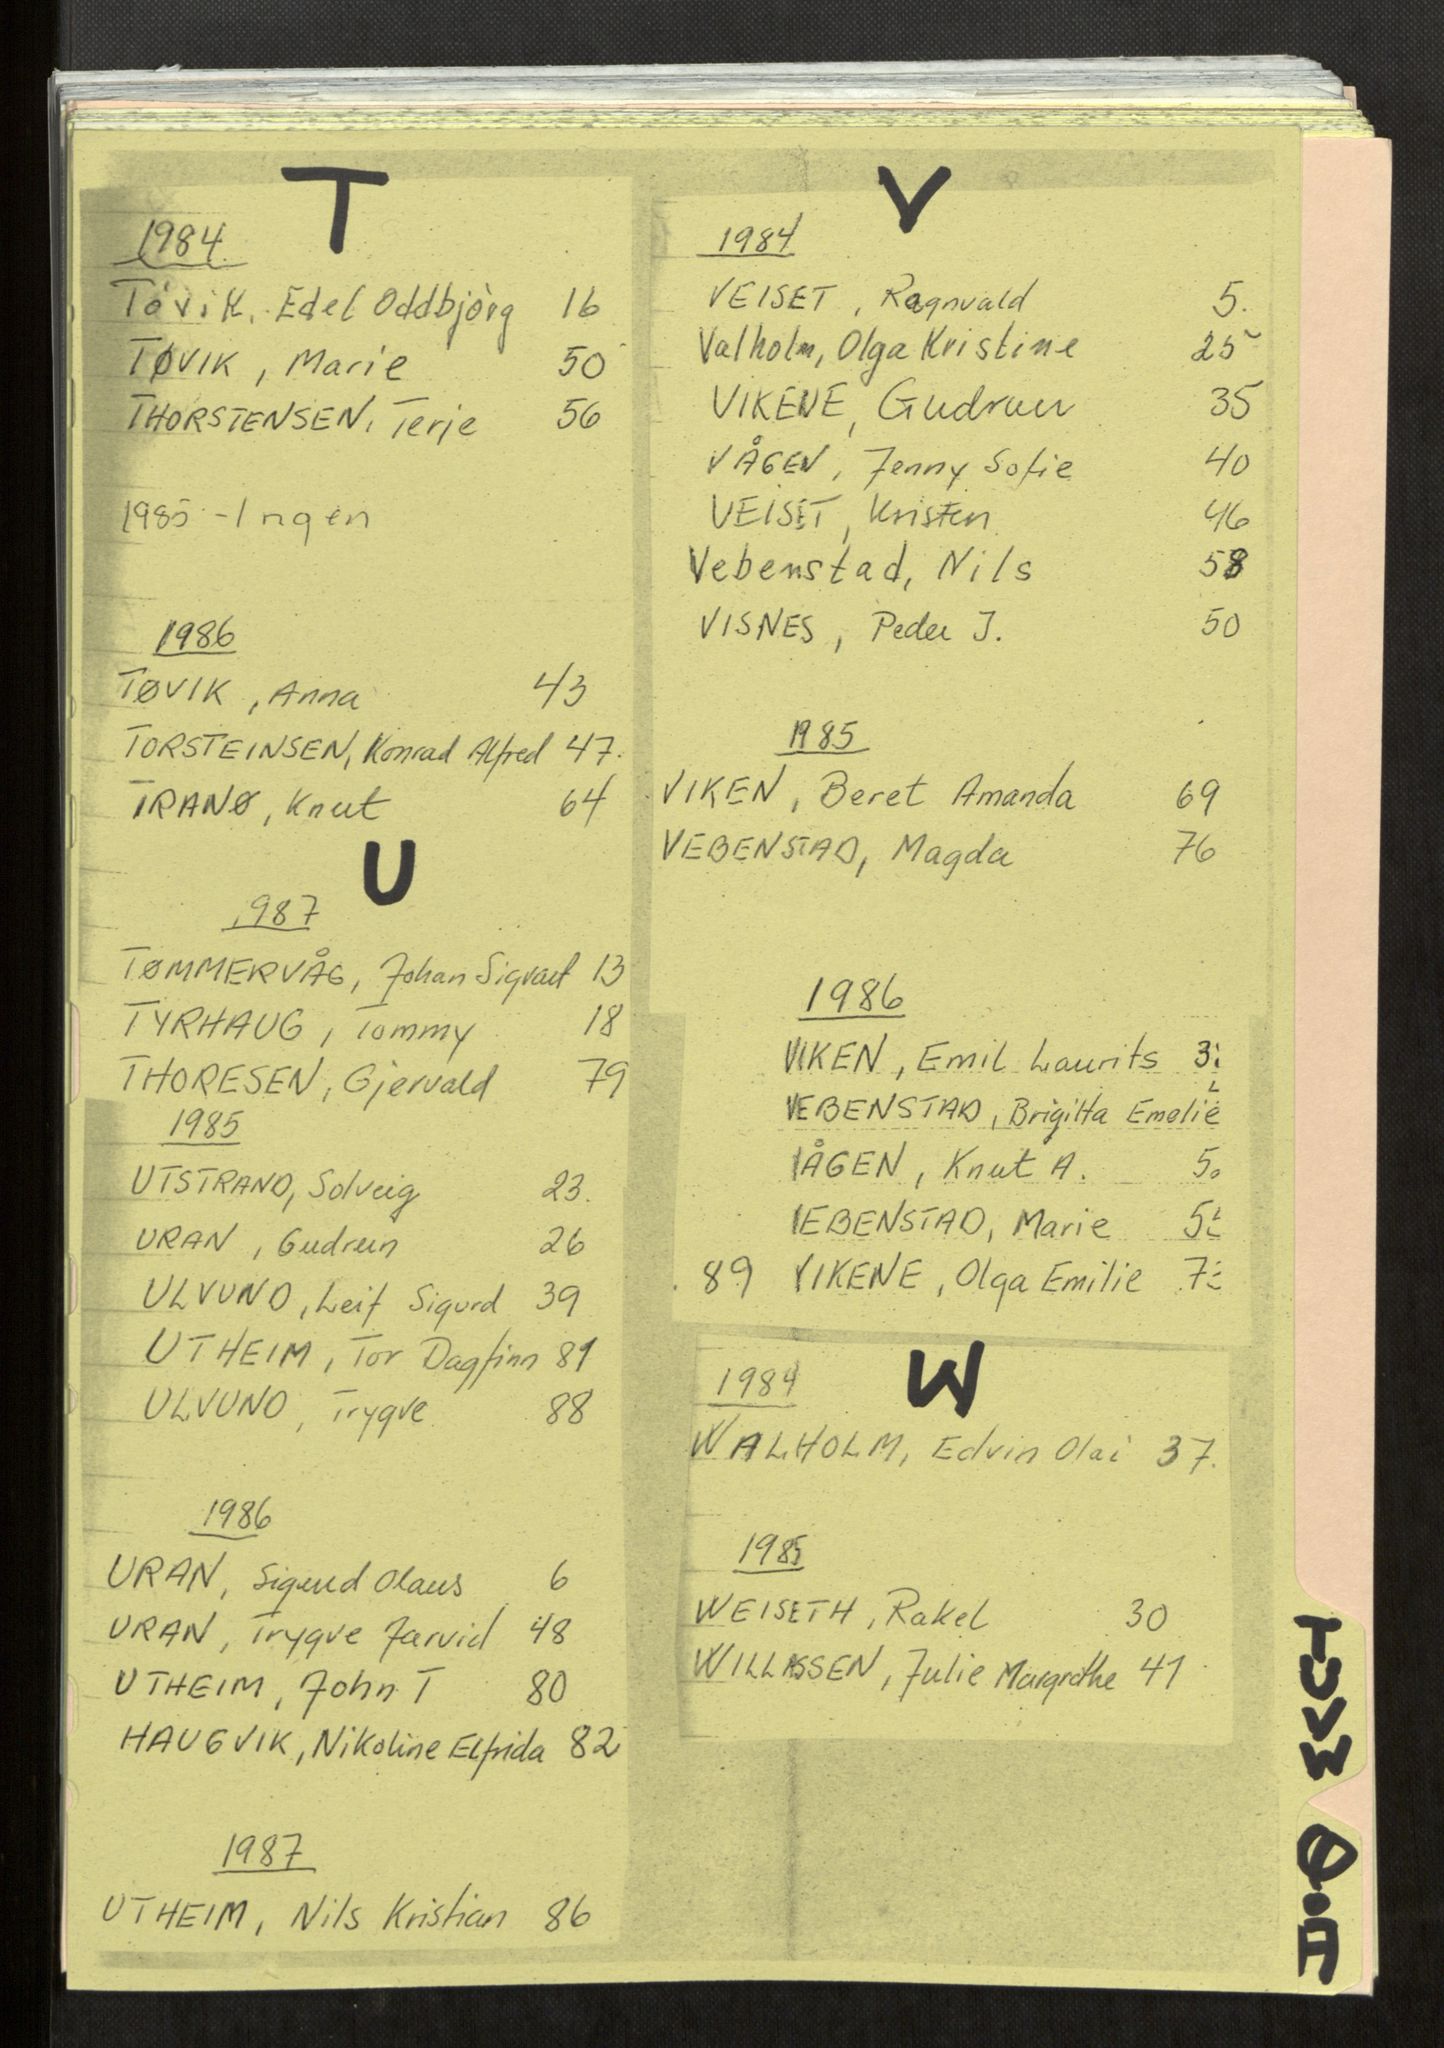 T
1984
Tóvik, Edel Oddbjörg 16
TØVIK, Marie 50
THORSTENSEN, Terje 56
1985 - Ingen
1986
TØVIK, Anna 43
TORSTEINSEN, Konrad Alfred 47.
TRANØ, Knut 64
U
1987
TØMMERVÅG, Johan Sigvart 13
TYRHAUG, Tommy 18
THORESEN, Gjervald 79
1985
UTSTRAND, Solveig 23.
URAN, Gudrun 26
ULVUND, Leif Sigurd 39
UTHEIM, Tor Dagfinn 81
ULVUND, Trygve 88
1986
URAN, Sigurd Olaus 6
URAN, Trygve Jarvid 48
UTHEIM, John T 80
HAUGVIK, Nikoline Elfrida 82
1987
UTHEIM, Nils Kristian 86
V
1984
VEISET, Ragnvald 5.
Valholm, Olga Kristine 25
VIKENE, Gudrun 35
VÅGEN, Jenny Sofie 40
VEISET, Kristen 46
Vebenstad, Nils 58
VISNES, Peder J. 50
1985
VIKEN, Beret Amanda 69
VEBENSTAD, Magda 76
1986
VIKEN, Emil Laurits
VEBENSTAD, Brigitta Emelie
VÅGEN, Knut A.
VEBENSTAD, Marie
89 VIKENE, Olga Emilie
W
1984
WALHOLM, Edvin Olai 37.
1985
WEISETH, Rakel 30
WILLASSEN, Julie Margrethe 41
TUVW
Ø.Å